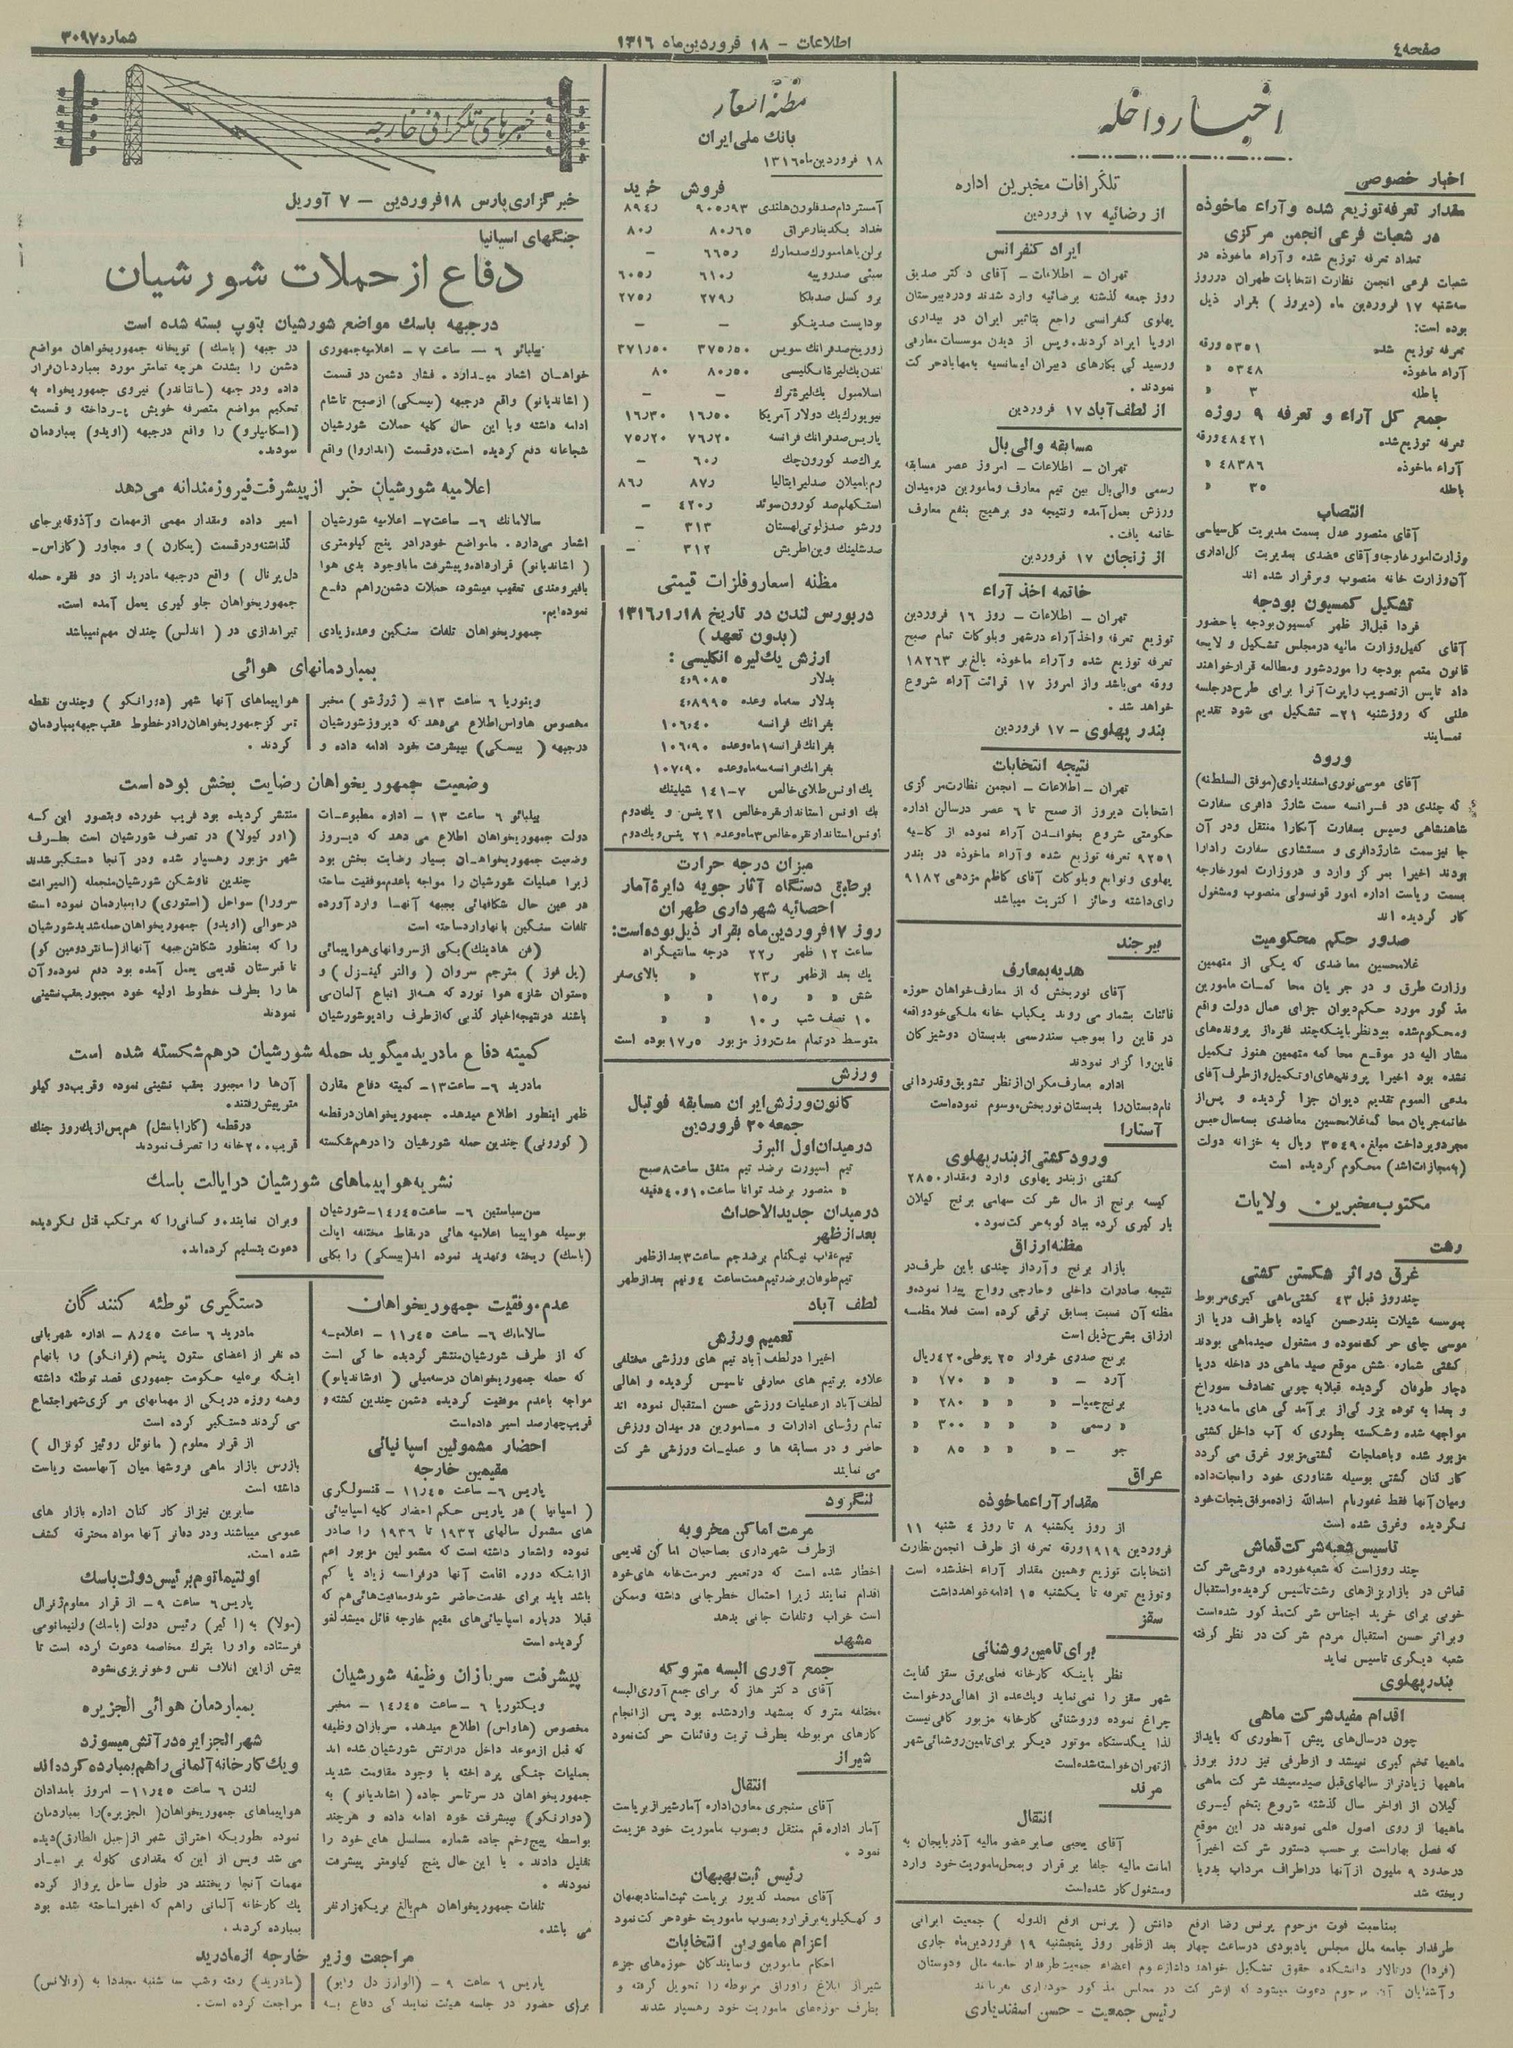 صفحه ٤
اطلاعات - ۱۸ فروردین ماه ۱۳۱۶
شماره ۳۰۹۷
اخبار داخله
اخبار خصوصی
مقدار تعرفه توزیع شده و آراء ماخوذه
در شعبات فرعی انجمن مرکزی
تعداد تعرفه توزیع شده و آراء ماخوذه در
شعبات فرعی انجمن نظارت انتخابات طهران در روز
سه‌شنبه ۱۷ فروردین ماه (دیروز) بقرار ذیل
بوده است:
تعرفه توزیع شده ۵۳۵۱ ورقه
آراء ماخوذه ۵۳۴۸ »
باطله ۳ »
جمع کل آراء و تعرفه ۹ روزه
تعرفه توزیع شده ۴۸۴۲۱ ورقه
آراء ماخوذه ۴۸۳۸۶ »
باطله ۳۵ »
انتصاب
آقای منصور عدل بسمت مدیریت کل سیاسی
وزارت امور خارجه و آقای عضدی بمدیریت کل اداری
آن وزارت خانه منصوب و برقرار شده اند
تشکیل کمسیون بودجه
فردا قبل از ظهر کمسیون بودجه با حضور
آقای کفیل وزارت مالیه در مجلس تشکیل و لایحه
قانون متمم بودجه را مورد شور و مطالعه قرار خواهند
داد تا پس از تصویب راپرت آنرا برای طرح در جلسه
علنی که روز شنبه ۲۱- تشکیل می شود تقدیم
نمایند
ورود
آقای موسی نوری اسفندیاری (موفق السلطنه)
که چندی در فرانسه سمت شارژ دافری سفارت
شاهنشاهی و سپس بسفارت آنکارا منتقل و در آن
جا نیز سمت شارژ دافری و مستشاری سفارت را دارا
بودند اخیرا بمرکز وارد و در وزارت امور خارجه
بسمت ریاست اداره امور قونسولی منصوب و مشغول
کار گردیده اند
صدور حکم محکومیت
غلامحسین معاضدی که یکی از متهمین
وزارت طرق و در جریان محاکمات مامورین
مذکور مورد حکم دیوان جزای عمال دولت واقع
و محکوم شده بود نظر باینکه چند فقره از پرونده های
مشار الیه در موقع محاکمه متهمین هنوز تکمیل
نشده بود اخیرا پرونده های او تکمیل و از طرف آقای
مدعی العموم تقدیم دیوان جزا گردیده و پس از
خاتمه جریان محاکمه غلامحسین معاضدی بسه سال حبس
مجرد و پرداخت مبلغ ۳۵۴۹۰ ریال به خزانه دولت
(به مجازات اشد) محکوم گردیده است
مکتوب مخبرین ولایات
رشت
غرق در اثر شکستن کشتی
چند روز قبل ۴۳ کشتی ماهی گیری مربوط
بموسسه شیلات بندر حسن کیاده باطراف دریا از
موسی چای حرکت نموده و مشغول صید ماهی بودند
کشتی شماره شش موقع صید ماهی در داخله دریا
دچار طوفان گردیده قبلا به چوبی تصادف سوراخ
و بعدا به توده بزرگی از برآمدگی های ماسه دریا
مواجهه شده و شکسته بطوری که آب داخل کشتی
مزبور شده و با عملجات کشتی مزبور غرق می گردد
کارکنان کشتی بوسیله شناوری خود را نجات داده
و میان آنها فقط غفور نام اسدالله زاده موفق بنجات خود
نگردیده و غرق شده است
تاسیس شعبه شرکت قماش
چند روز است که شعبه خورده فروشی شرکت
قماش در بازار بزازهای رشت تاسیس گردیده و استقبال
خوبی برای خرید اجناس شرکت مذکور شده است
و بر اثر حسن استقبال مردم شرکت در نظر گرفته
شعبه دیگری تاسیس نماید
بندر پهلوی
اقدام مفید شرکت ماهی
چون در سال‌های پیش آنطوری که باید از
ماهیها تخم گیری نمیشد و از طرفی نیز روز بروز
ماهیها زیادتر از سالهای قبل صید میشد شرکت ماهی
گیلان از اواخر سال گذشته شروع بتخم گیری
ماهیها از روی اصول علمی نمودند در این موقع
که فصل بهار است بر حسب دستور شرکت اخیراً
در حدود ۹ ملیون از آنها در اطراف مرداب بدریا
ریخته شد
تلگرافات مخبرین اداره
از رضائیه ۱۷ فروردین
ایراد کنفرانس
تهران - اطلاعات - آقای دکتر صدیق
روز جمعه گذشته برضائیه وارد شدند و در دبیرستان
پهلوی کنفرانسی راجع بتاثیر ایران در بیداری
اروپا ایراد کردند. و پس از دیدن موسسات معارفی
و رسیدگی بکارهای دبیران لیسانسیه به مهاباد حرکت
نمودند.
از لطف آباد ۱۷ فروردین
مسابقه والی بال
تهران - اطلاعات - امروز عصر مسابقه
رسمی والی بال بین تیم معارف و مامورین در میدان
ورزش بعمل آمده و نتیجه دو بر هیچ بنفع معارف
خاتمه یافت.
از زنجان ۱۷ فروردین
خاتمه اخذ آراء
تهران - اطلاعات - روز ۱۶ فروردین
توزیع تعرفه و اخذ آراء در شهر و بلوکات تمام صبح
تعرفه توزیع شده و آراء ماخوذه بالغ بر ۱۸۲۶۳
ورقه می باشد و از امروز ۱۷ قرائت آراء شروع
خواهد شد.
بندر پهلوی - ۱۷ فروردین
نتیجه انتخابات
تهران - اطلاعات - انجمن نظارت مرکزی
انتخابات دیروز از صبح تا ۶ عصر در سالن اداره
حکومتی شروع بخواندن آراء نموده از کلیه
۹۲۵۱ تعرفه توزیع شده و آراء ماخوذه در بندر
پهلوی و توابع و بلوکات آقای کاظم مزدهی ۹۱۸۲
رای داشته و حائز اکثریت میباشد
بیرجند
هدیه بمعارف
آقای نوربخش که از معارف خواهان حوزه
قائنات بشمار می روند یکباب خانه ملکی خود واقعه
در قاین را بموجب سند رسمی بدبستان دوشیزکان
قاین واگزار نمودند
اداره معارف مکران از نظر تشویق و قدردانی
نام دبستان را بدبستان نوربخش موسوم نموده است
آستارا
ورود کشتی از بندر پهلوی
کشتی از بندر پهلوی وارد و مقدار ۲۸۵۰
کیسه برنج از مال شرکت سهامی برنج گیلان
بار گیری کرده بباد کوبه حرکت نمود.
مظنه ارزاق
بازار برنج و آرد از چندی باین طرف در
نتیجه صادرات داخلی و خارجی رواج پیدا نموده و
مظنه آن نسبت بسابق ترقی کرده است فعلا مظنه
ارزاق بشرح ذیل است
برنج صدری خروار ۲۵ پوطی ۴۲۰ ریال
آرد - » » » ۱۷۰ »
برنج چمپا - » » ۲۸۰ »
» رسمی » » ۳۰۰ »
جو - » » » ۸۵ »
عراق
مقدار آراء ماخوذه
از روز یکشنبه ۸ تا روز ۴ شنبه ۱۱
فروردین ۱۹۱۹ ورقه تعرفه از طرف انجمن نظارت
انتخابات توزیع و همین مقدار آراء اخذ شده است
و توزیع تعرفه تا یکشنبه ۱۵ ادامه خواهد داشت
سقز
برای تامین روشنائی
نظر باینکه کارخانه فعلی برق سقز کفایت
شهر سقز را نمی نماید و یک عده از اهالی درخواست
چراغ نموده و روشنائی کارخانه مزبور کافی نیست
لذا یکدستگاه موتور دیگر برای تامین روشنائی شهر
از تهران خواسته شده است
مرند
انتقال
آقای یحیی صابر عضو مالیه آذربایجان به
امانت مالیه جلفا برقرار و بمحل ماموریت خود وارد
و مشغول کار شده است
بمناسبت فوت مرحوم پرنس رضا ارفع دانش (پرنس ارفع الدوله) جمعیت ایرانی
طرفدار جامعه ملل مجلس یادبودی در ساعت چهار بعد از ظهر روز پنجشنبه ۱۹ فروردین ماه جاری
(فردا) در تالار دانشکده حقوق تشکیل خواهد داد لازم اعضاء جمعیت طرفدار جامعه ملل و دوستان
و آشنایان آن مرحوم دعوت میشود که از شرکت در مجلس مذکور خودداری نفرمایند
رئیس جمعیت - حسن اسفندیاری
مظنه اسعار
بانک ملی ایران
۱۸ فروردین ماه ۱۳۱۶
فروش خرید
آمستردام صد فلورن هلندی ۹۰۵٫۹۳ ۸۹۴٫
بغداد یکدینار عراق ۸۰٫۶۵ ۸۰٫
برلن یا هامبورک صد مارک ۶۶۵٫ -
بمبئی صد روپیه ۶۱۰٫ ۶۰۵٫
بروکسل صد بلکا ۲۷۹٫ ۲۷۵٫
بوداپست صد پنگو - -
زوریخ صد فرانک سویس ۳۷۵٫۵۰ ۳۷۱٫۵۰
لندن یک لیره انگلیسی ۸۰٫۵۰ ۸۰
اسلامبول یک لیره ترک - -
نیویورک یک دولار آمریکا ۱۶٫۵۰ ۱۶٫۳۰
پاریس صد فرانک فرانسه ۷۶٫۲۰ ۷۵٫۲۰
پراک صد کورون چک ۶۰٫ -
رم یا میلان صد لیر ایتالیا ۸۷٫ ۸۶٫
استکهلم صد کورون سوئد ۴۲۰٫ -
ورشو صد زلوتی لهستان ۳۱۳ -
صد شلینک وین اطریش ۳۱۲ -
مظنه اسعار و فلزات قیمتی
در بورس لندن در تاریخ ۱۳۱۶٫۱٫۱۸
(بدون تعهد)
ارزش یک لیره انگلیسی:
بدلار ۴٫۹۰۸۵
بدلار سه ماه وعده ۴٫۸۹۹۵
بفرانک فرانسه ۱۰۶٫۴۰
بفرانک فرانسه ۱ ماه وعده ۱۰۶٫۹۰
بفرانک فرانسه سه ماه وعده ۱۰۷٫۹۰
یک اونس طلای خالص ۷-۱۴۱ شیلینک
یک اونس استاندارد نقره خالص ۲۱ پنس و یک دوم
اونس استاندارد نقره خالص ۳ ماه وعده ۲۱ پنس و یک دوم
میزان درجه حرارت
بر طبق دستگاه آثار جویه دایرة آمار
احصائیه شهرداری طهران
روز ۱۷ فروردین ماه بقرار ذیل بوده است:
ساعت ۱۲ ظهر ۲۲٫ درجه سانتیگراد
یک بعد از ظهر ۲۳٫ » بالای صفر
شش » » ۱۵٫ » »
۱۰ نصف شب ۱۰٫ » »
متوسط در تمام مدت روز مزبور ۱۷٫۵ بوده است
ورزش
کانون ورزش ایران مسابقه فوتبال
جمعه ۲۰ فروردین
در میدان اول البرز
تیم اسپورت بر ضد تیم متفق ساعت ۸ صبح
» منصور بر ضد توانا ساعت ۱۰ و ۴۰ دقیقه
در میدان جدید الاحداث
بعد از ظهر
تیم عقاب نیکنام بر ضد جم ساعت ۳ بعد از ظهر
تیم طوفان بر ضد تیم همت ساعت ۴ و نیم بعد از ظهر
لطف آباد
تعمیم ورزش
اخیرا در لطف آباد تیم های ورزشی مختلفی
علاوه بر تیم های معارفی تاسیس گردیده و اهالی
لطف آباد از عملیات ورزشی حسن استقبال نموده اند
تمام رؤسای ادارات و مامورین در میدان ورزش
حاضر و در مسابقه ها و عملیات ورزشی شرکت
می نمایند
لنگرود
مرمت اماکن مخروبه
از طرف شهرداری بصاحبان اماکن قدیمی
اخطار شده است که در تعمیر و مرمت خانه های خود
اقدام نمایند زیرا احتمال خطر جانی داشته و ممکن
است خراب و تلفات جانی بدهد
مشهد
جمع آوری البسه متروکه
آقای دکتر هاز که برای جمع آوری البسه
مختلفه متروکه بمشهد وارد شده بود پس از انجام
کارهای مربوطه بطرف تربت و قائنات حرکت نمود
شیراز
انتقال
آقای سنجری معاون اداره آمار شیراز بریاست
آمار اداره قم منتقل و بصوب ماموریت خود عزیمت
نمود.
رئیس ثبت بهبهان
آقای محمد کدیور بریاست ثبت اسناد بهبهان
و کهکیلویه برقرار و بصوب ماموریت خود حرکت نمود
اعزام مامورین انتخابات
احکام مامورین و نمایندکان حوزه های جزء
شیراز ابلاغ و اوراق مربوطه را تحویل گرفته و
بطرف حوزه های ماموریت خود رهسپار شدند
خبرهای تلگرافی خارجه
خبرگزاری پارس ۱۸ فروردین - ۷ آوریل
جنگهای اسپانیا
دفاع از حملات شورشیان
در جبهه باسک مواضع شورشیان بتوپ بسته شده است
بیلبائو ۶ - ساعت ۷ - اعلامیه جمهوری
خواهان اشعار میدارد. فشار دشمن در قسمت
(اشاندیانو) واقع در جبهه (بیسکی) از صبح تا شام
ادامه داشته و با این حال کلیه حملات شورشیان
شجاعانه دفع گردیده است. در قسمت (ابداروا) واقع
در جبهه (باسک) توپخانه جمهوریخواهان مواضع
دشمن را بشدت هر چه تمامتر مورد بمباردمان قرار
داده و در جبهه (سانتاندر) نیروی جمهوریخواه به
تحکیم مواضع متصرفه خویش پرداخته و قسمت
(اسکامپلرو) را واقع در جبهه (اویدو) بمباردمان
نمودند.
اعلامیه شورشیان خبر از پیشرفت فیروزمندانه می‌دهد
سالامانک ۶- ساعت ۷- اعلامیه شورشیان
اشعار می دارد. ما مواضع خود را در پنج کیلومتری
(اشاندیانو) قرار داده و پیشرفت ما با وجود بدی هوا
با فیروزمندی تعقیب میشود، حملات دشمن را هم دفع
نموده‌ایم.
جمهوریخواهان تلفات سنگین و عده زیادی
اسیر داده و مقدار مهمی از مهمات و آذوقه بر جای
گذاشته و در قسمت (پنکارن) و مجاور (کازاس-
دل پرنال) واقع در جبهه مادرید از دو فقره حمله
جمهوریخواهان جلو گیری بعمل آمده است.
تیراندازی در (اندلس) چندان مهم نمیباشد
بمباردمانهای هوائی
ویتوریا ۶ ساعت ۱۳- (ژرژشو) مخبر
مخصوص هاواس اطلاع می‌دهد که دیروز شورشیان
در جبهه (بیسکی) بپیشرفت خود ادامه داده و
هواپیماهای آنها شهر (دورانکو) و چندین نقطه
تمرکز جمهوریخواهان را در خطوط عقب جبهه بمباردمان
کردند.
وضعیت جمهوریخواهان رضایت بخش بوده است
بیلبائو ۶ ساعت ۱۳ - اداره مطبوعات
دولت جمهوریخواهان اطلاع می دهد که دیروز
وضعیت جمهوریخواهان بسیار رضایت بخش بود
زیرا عملیات شورشیان را مواجه با عدم موفقیت ساخته
در عین حال شکافهائی بجبهه آنها وارد آورده
تلفات سنگین بآنها وارد ساخته است
(فن هادینک) یکی از سروانهای هواپیمائی
(پل فوز) مترجم سروان (والتر کینزل) و
دستوان شازه هوا نورد که همه از اتباع آلمان می
باشند در نتیجه اخبار کذبی که از طرف رادیو شورشیان
منتشر گردیده بود فریب خورده و بتصور این که
(اور کیولا) در تصرف شورشیان است بطرف
شهر مزبور رهسپار شده و در آنجا دستگیر شدند
چندین ناو شکن شورشیان منجمله (المیرانت
سرورا) سواحل (استوری) را بمباردمان نموده است
در حوالی (اویدو) جمهوریخواهان حمله شدید شورشیان
را که بمنظور شکافتن جبهه آنها از (سانتر دومین کو)
تا قبرستان قدیمی بعمل آمده بود دفع نموده و آن
ها را بطرف خطوط اولیه خود مجبور بعقب نشینی
نمودند
کمیته دفاع مادرید میگوید حمله شورشیان در هم شکسته شده است
مادرید ۶- ساعت ۱۳- کمیته دفاع مقارن
ظهر اینطور اطلاع میدهد. جمهوریخواهان در قطعه
(کورونی) چندین حمله شورشیان را در هم شکسته
آن‌ها را مجبور بعقب نشینی نموده و قریب دو کیلو
متر پیش رفتند.
در قطعه (کارابانشل) هم پس از یک روز جنک
قریب ۲۰۰ خانه را تصرف نمودند
نشریه هواپیماهای شورشیان در ایالت باسک
سن سباستین ۶- ساعت ۱۴٫۴۵- شورشیان
بوسیله هواپیما اعلامیه هائی در نقاط مختلفه ایالت
(باسک) ریخته و تهدید نموده اند (بیسکی) را بکلی
ویران نمایند. و کسانی را که مرتکب قتل نگردیده
دعوت بتسلیم کرده اند.
عدم موفقیت جمهوریخواهان
سالامانک ۶- ساعت ۱۱٫۴۵ - اعلامیه
که از طرف شورشیان منتشر گردیده حاکی است
که حمله جمهوریخواهان در سه میلی (اوشاندیانو)
مواجه با عدم موفقیت گردیده دشمن چندین کشته و
قریب چهارصد اسیر داده است
احضار مشمولین اسپانیائی
مقیمین خارجه
پاریس ۶- ساعت ۱۱٫۴۵ - قنسولگری
(اسپانیا) در پاریس حکم احضار کلیه اسپانیائی
های مشمول سالهای ۱۹۳۲ تا ۱۹۳۶ را صادر
نموده و اشعار داشته است که مشمولین مزبور اعم
از اینکه دوره اقامت آنها در فرانسه زیاد یا کم
باشد باید برای خدمت حاضر شوند و معافیت هائی هم که
قبلا درباره اسپانیائی های مقیم خارجه قائل میشدند لغو
گردیده است
پیشرفت سربازان وظیفه شورشیان
ویکتوریا ۶ - ساعت ۱۴٫۴۵ - مخبر
مخصوص (هاواس) اطلاع میدهد. سربازان وظیفه
که قبل از موعد داخل در ارتش شورشیان شده اند
بعملیات جنگی پرداخته با وجود مقاومت شدید
جمهوریخواهان در سرتاسر جاده (اشاندیانو) به
(دوارنکو) بپیشرفت خود ادامه داده و هر چند
بواسطه پیچ و خم جاده شماره مسلسل های خود را
تقلیل دادند. با این حال پنج کیلومتر پیشرفت
نمودند.
تلفات جمهوریخواهان هم بالغ بر یکهزار نفر
می باشد.
دستگیری توطئه کنندگان
مادرید ۶ ساعت ۸٫۴۵ - اداره شهربانی
ده نفر از اعضای ستون پنجم (فرانکو) را باتهام
اینکه بر علیه حکومت جمهوری قصد توطئه داشته
و همه روزه در یکی از مهمانهای مرکزی شهر اجتماع
می کردند دستگیر کرده است
از قرار معلوم (مانوئل روئیز کونزال)
بازرس بازار ماهی فروشها میان آنها سمت ریاست
داشته است
سایرین نیز از کارکنان اداره بازار های
عمومی میباشند و در دفاتر آنها مواد محترقه کشف
شده است.
اولتیماتوم برئیس دولت باسک
پاریس ۶ ساعت ۹ - از قرار معلوم ژنرال
(مولا) به (اگیر) رئیس دولت (باسک) اولتیماتومی
فرستاده و او را بترک مخاصمه دعوت کرده است تا
بیش از این اتلاف نفس و خونریزی نشود
بمباردمان هوائی الجزیره
شهر الجزایره در آتش میسوزد
و یک کارخانه آلمانی را هم بمبارده کرده اند
لندن ۶ ساعت ۱۱٫۴۵- امروز بامدادان
هواپیماهای جمهوریخواهان (الجزیره) را بمباردمان
نموده بطوریکه احتراق شهر از (جبل الطارق) دیده
می شد و پس از این که مقداری گلوله بر انبار
مهمات آنجا ریختند در طول ساحل پرواز کرده
یک کارخانه آلمانی راهم که اخیرا ساخته شده بود
بمبارده کردند.
مراجعت وزیر خارجه از مادرید
پاریس ۶ ساعت ۹ - (الوارز دل وایو)
برای حضور در جلسه هیئت نمایندگی دفاع به
(مادرید) رفته و شب سه شنبه مجددا به (والانس)
مراجعت کرده است.